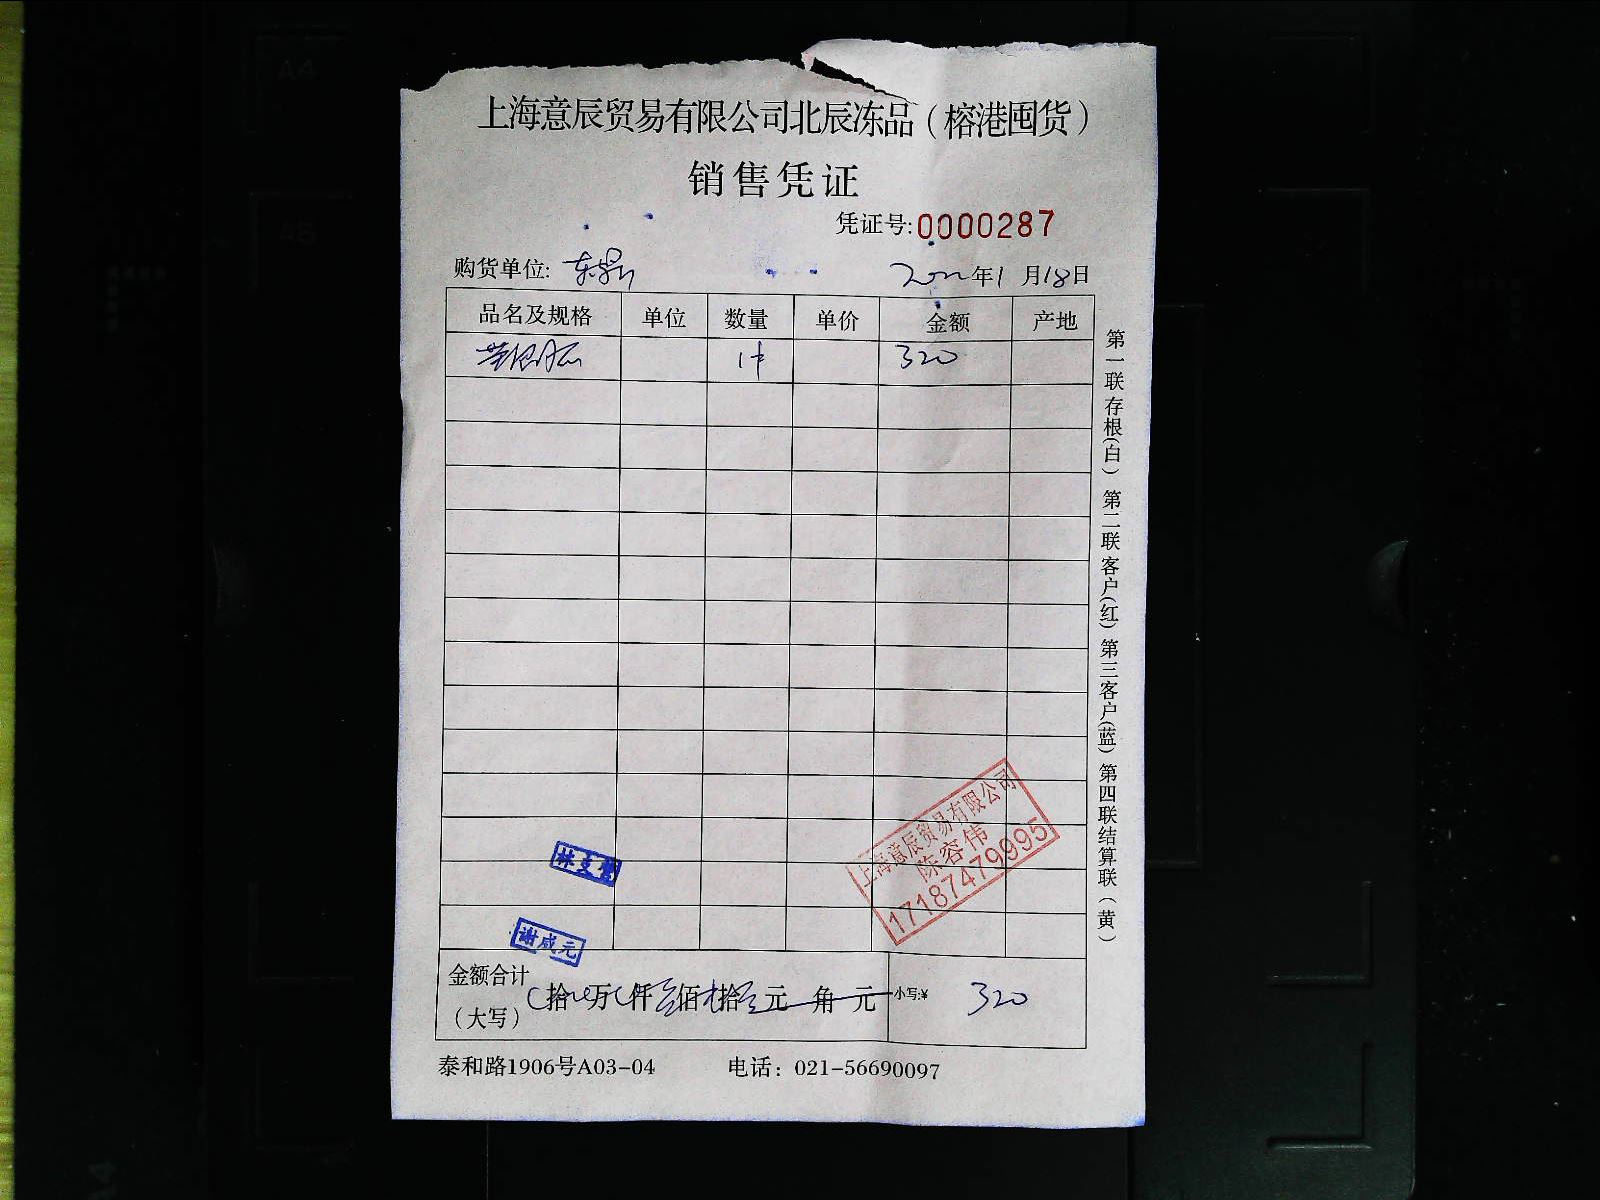 上海意辰贸易有限公司北辰冻品（榕港囤货）
销售凭证
凭证号:0000287
购货单位:
2022年1月18日
品名及规格 单位 数量 单价 金额 产地
1件 320
第一联存根(白) 第二联客户(红) 第三客户(蓝) 第四联结算联（黄）
上海意辰贸易有限公司
陈容伟
17187479995
谢咸元
金额合计
（大写） 拾 万 仟 佰 拾 元 角 元 小写:¥ 320
泰和路1906号A03-04 电话：021-56690097
A4
A5